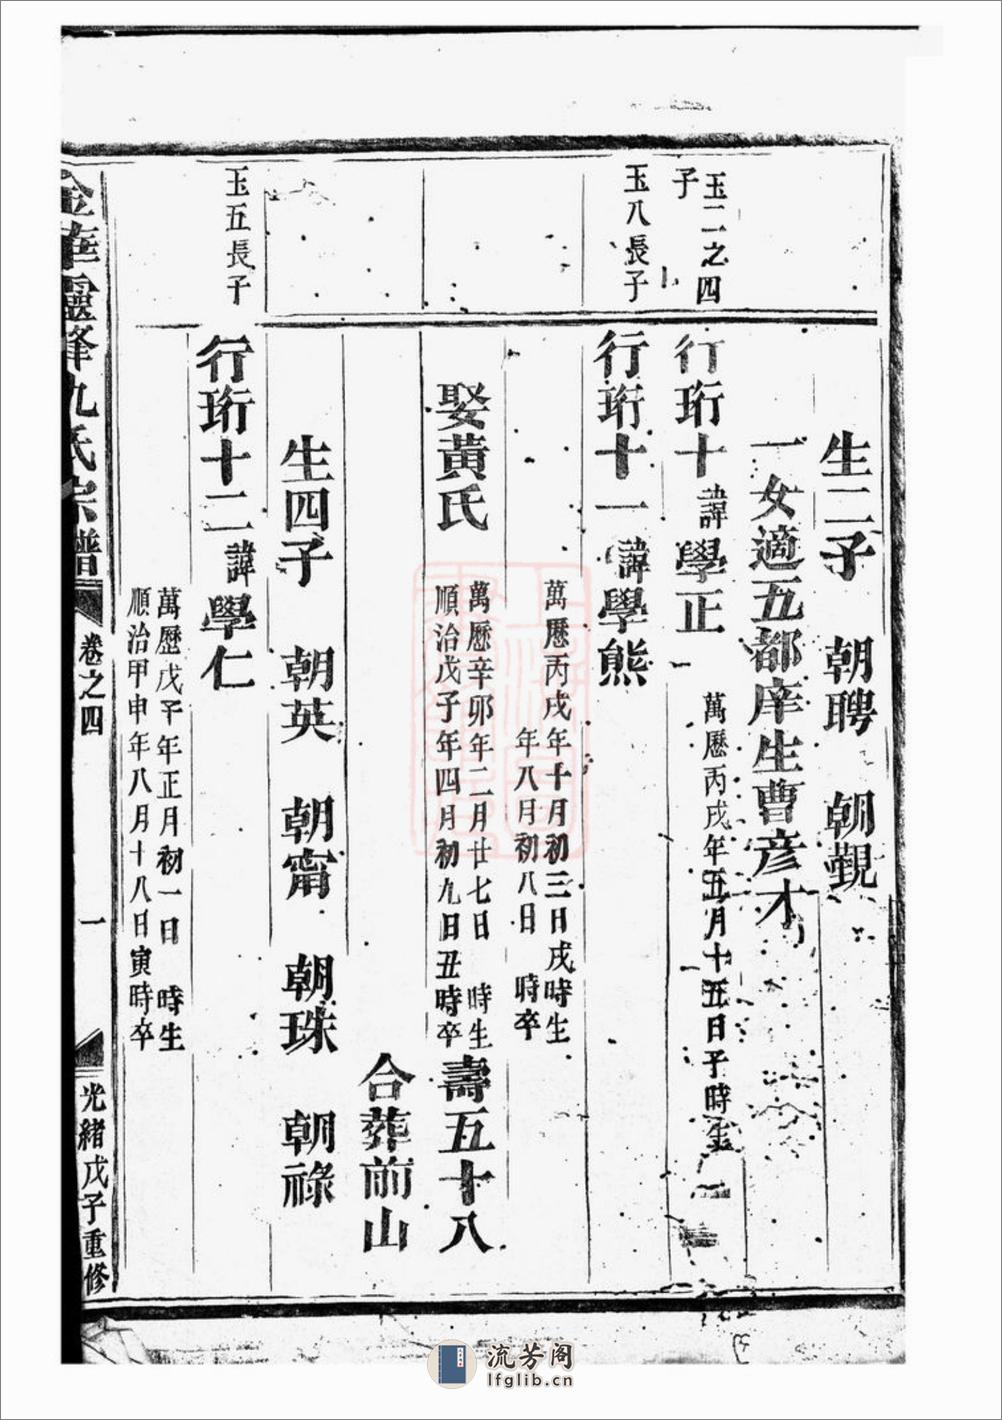 生二子 朝聘 朝覲
一女適五都庠生曹彦才
玉二之四
子
行珩十 諱 學正 萬歷丙戌年五月十五日子時生
玉八長子
行珩十一 諱 學熊
萬歷丙戌年十月初三日戌時生
年八月初八日 時卒
娶黄氏
萬歷辛卯年二月廿七日 時生
順治戊子年四月初九日丑時卒
壽五十八
合葬前山
生四子 朝英 朝甯 朝珠 朝祿
玉五長子
行珩十二 諱 學仁
萬歷戊午年正月初一日 時生
順治甲申年八月十八日寅時卒
金華靈峰九氏宗譜 卷之四 一 光緒戊子重修
流芳阁
lfglib.cn